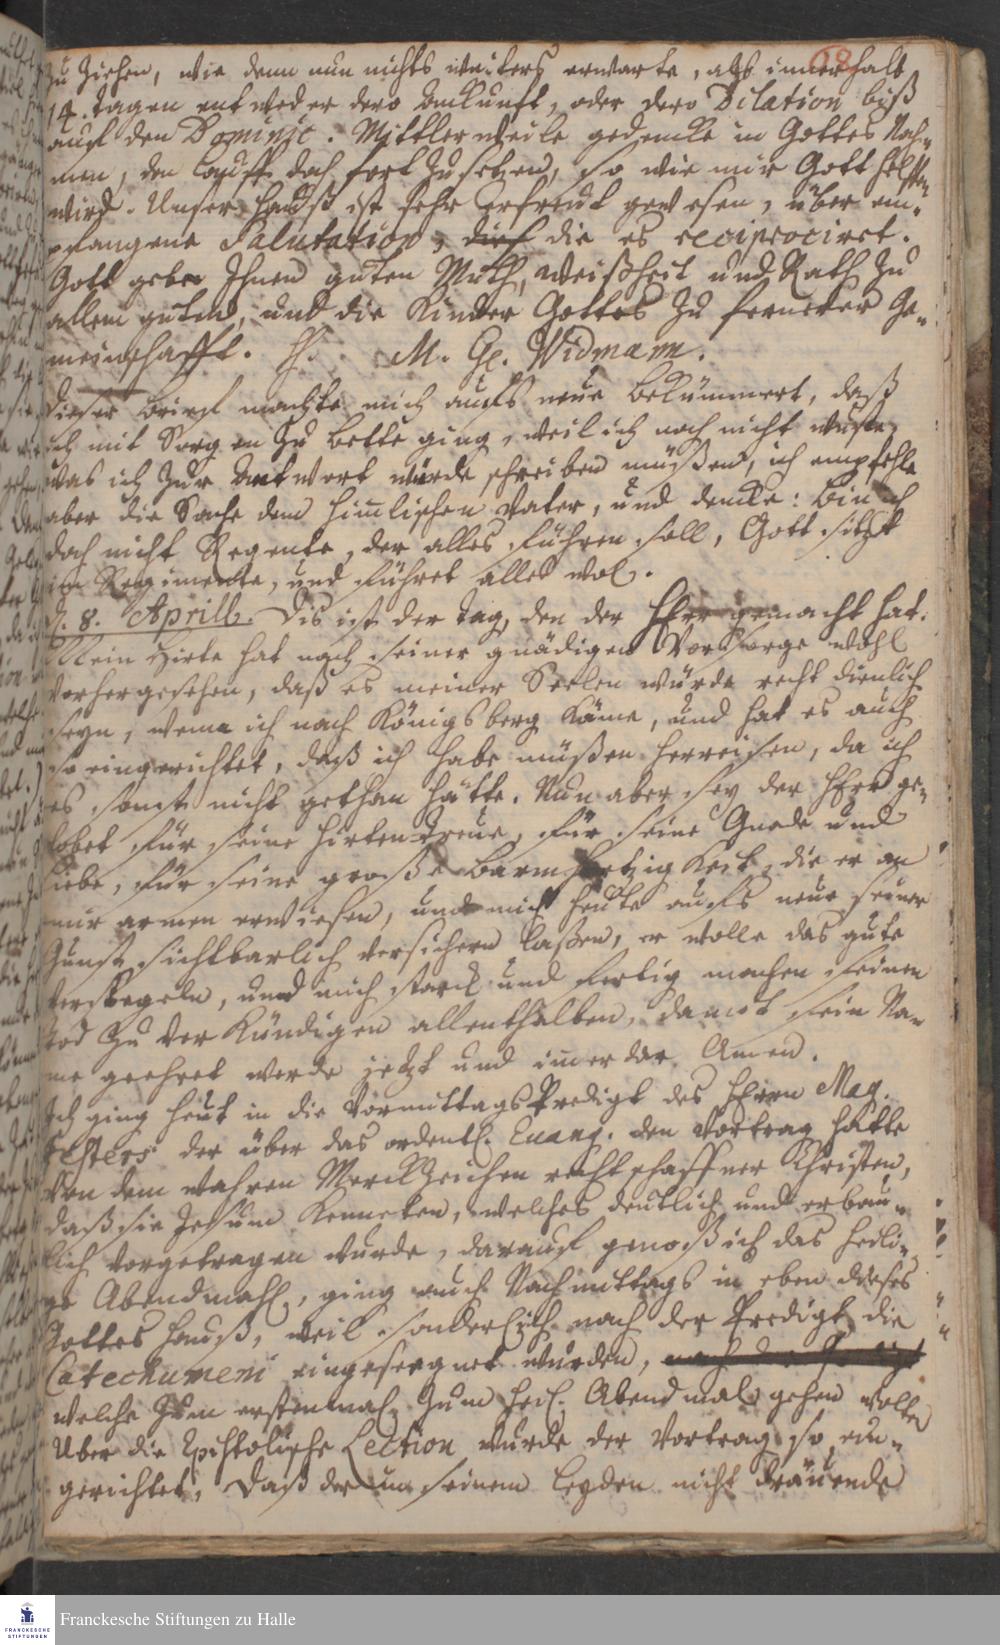 zu ziehen, wie denn nun nichts weiters erwarte, als innerhalb
14. tagen entweder dero Ankunft, oder dero Dilation biß
auf den Dominic: Mittlerweile gedencke in Gottes Nah-
men, den Lauff doch fort zu setzen, so wie mir Gott helffen
wird. Unser Hauß ist sehr erfreut gewesen, über em-
pfangene Salutation, die es reciprociret.
Gott gebe Ihnen guten Muth, Weißheit und Rath zu
allem guten, und die Kinder Gottes zu fernerer Ge-
meinschafft. M. Ge. Widmann.
Dieser Brief machte mich aufs neue bekümmert, daß
ich mit Sorgen zu bette ging, weil ich noch nicht wuste,
was ich zur Antwort würde schreiben müßen, ich empfehle
aber die Sache dem himlischen Vater, und dencke: Bin ich
doch nicht Regente, der alles führen soll, Gott sitzt
im Regimente, und führet alles wol.
D. 8. Aprill. Dis ist der tag, den der HErr gemacht hat.
Mein Hirte hat nach seiner gnädigen Vorsorge wohl
vorhergesehen, daß es meiner Seelen würde recht dienlich
seyn, wenn ich nach Königsberg käme, und hat es auch
so eingerichtet, daß ich habe müßen herreisen, da ich
es sonst nicht gethan hätte. Nun aber sey der HErr ge-
lobet für seine Hirten-treue, für seine Gnade und
Liebe, für seine große Barmhertzigkeit, die er an
mir armen erwiesen, und mich heute aufs neue seiner
Gunst sichtbarlich versichern laßen, er wolle das gute
versiegeln, und mich starck und fertig machen seinen
tod zu verkündigen allenthalben, damit sein Na-
me geehret werde jetzt und imerdar. Amen.
Ich ging heut in die VormittagsPredigt des Herrn Mag.
der über das ordentl. Euang. den Vortrag hatte
von dem wahren Merckzeichen rechtschaffner Christen,
daß sie Jesum kenneten, welches deutlich und erbau-
lich vorgetragen wurde, darauf genoß ich das heili-
ge Abendmahl, ging auch Nachmittags in eben dieses
Gottes Hauß, weil sonderlich nach der Predigt die
Catechumeni eingesegnet wurden,
welche zum erstenmal zum heil. Abendmal gehen wolten
Uber die Epistolische Lection wurde der Vortrag so ein-
gerichtet, daß der in seinem Leyden nicht dräuende
Franckesche Stiftungen zu Halle
FRANCKESCHE
STIFTUNGEN